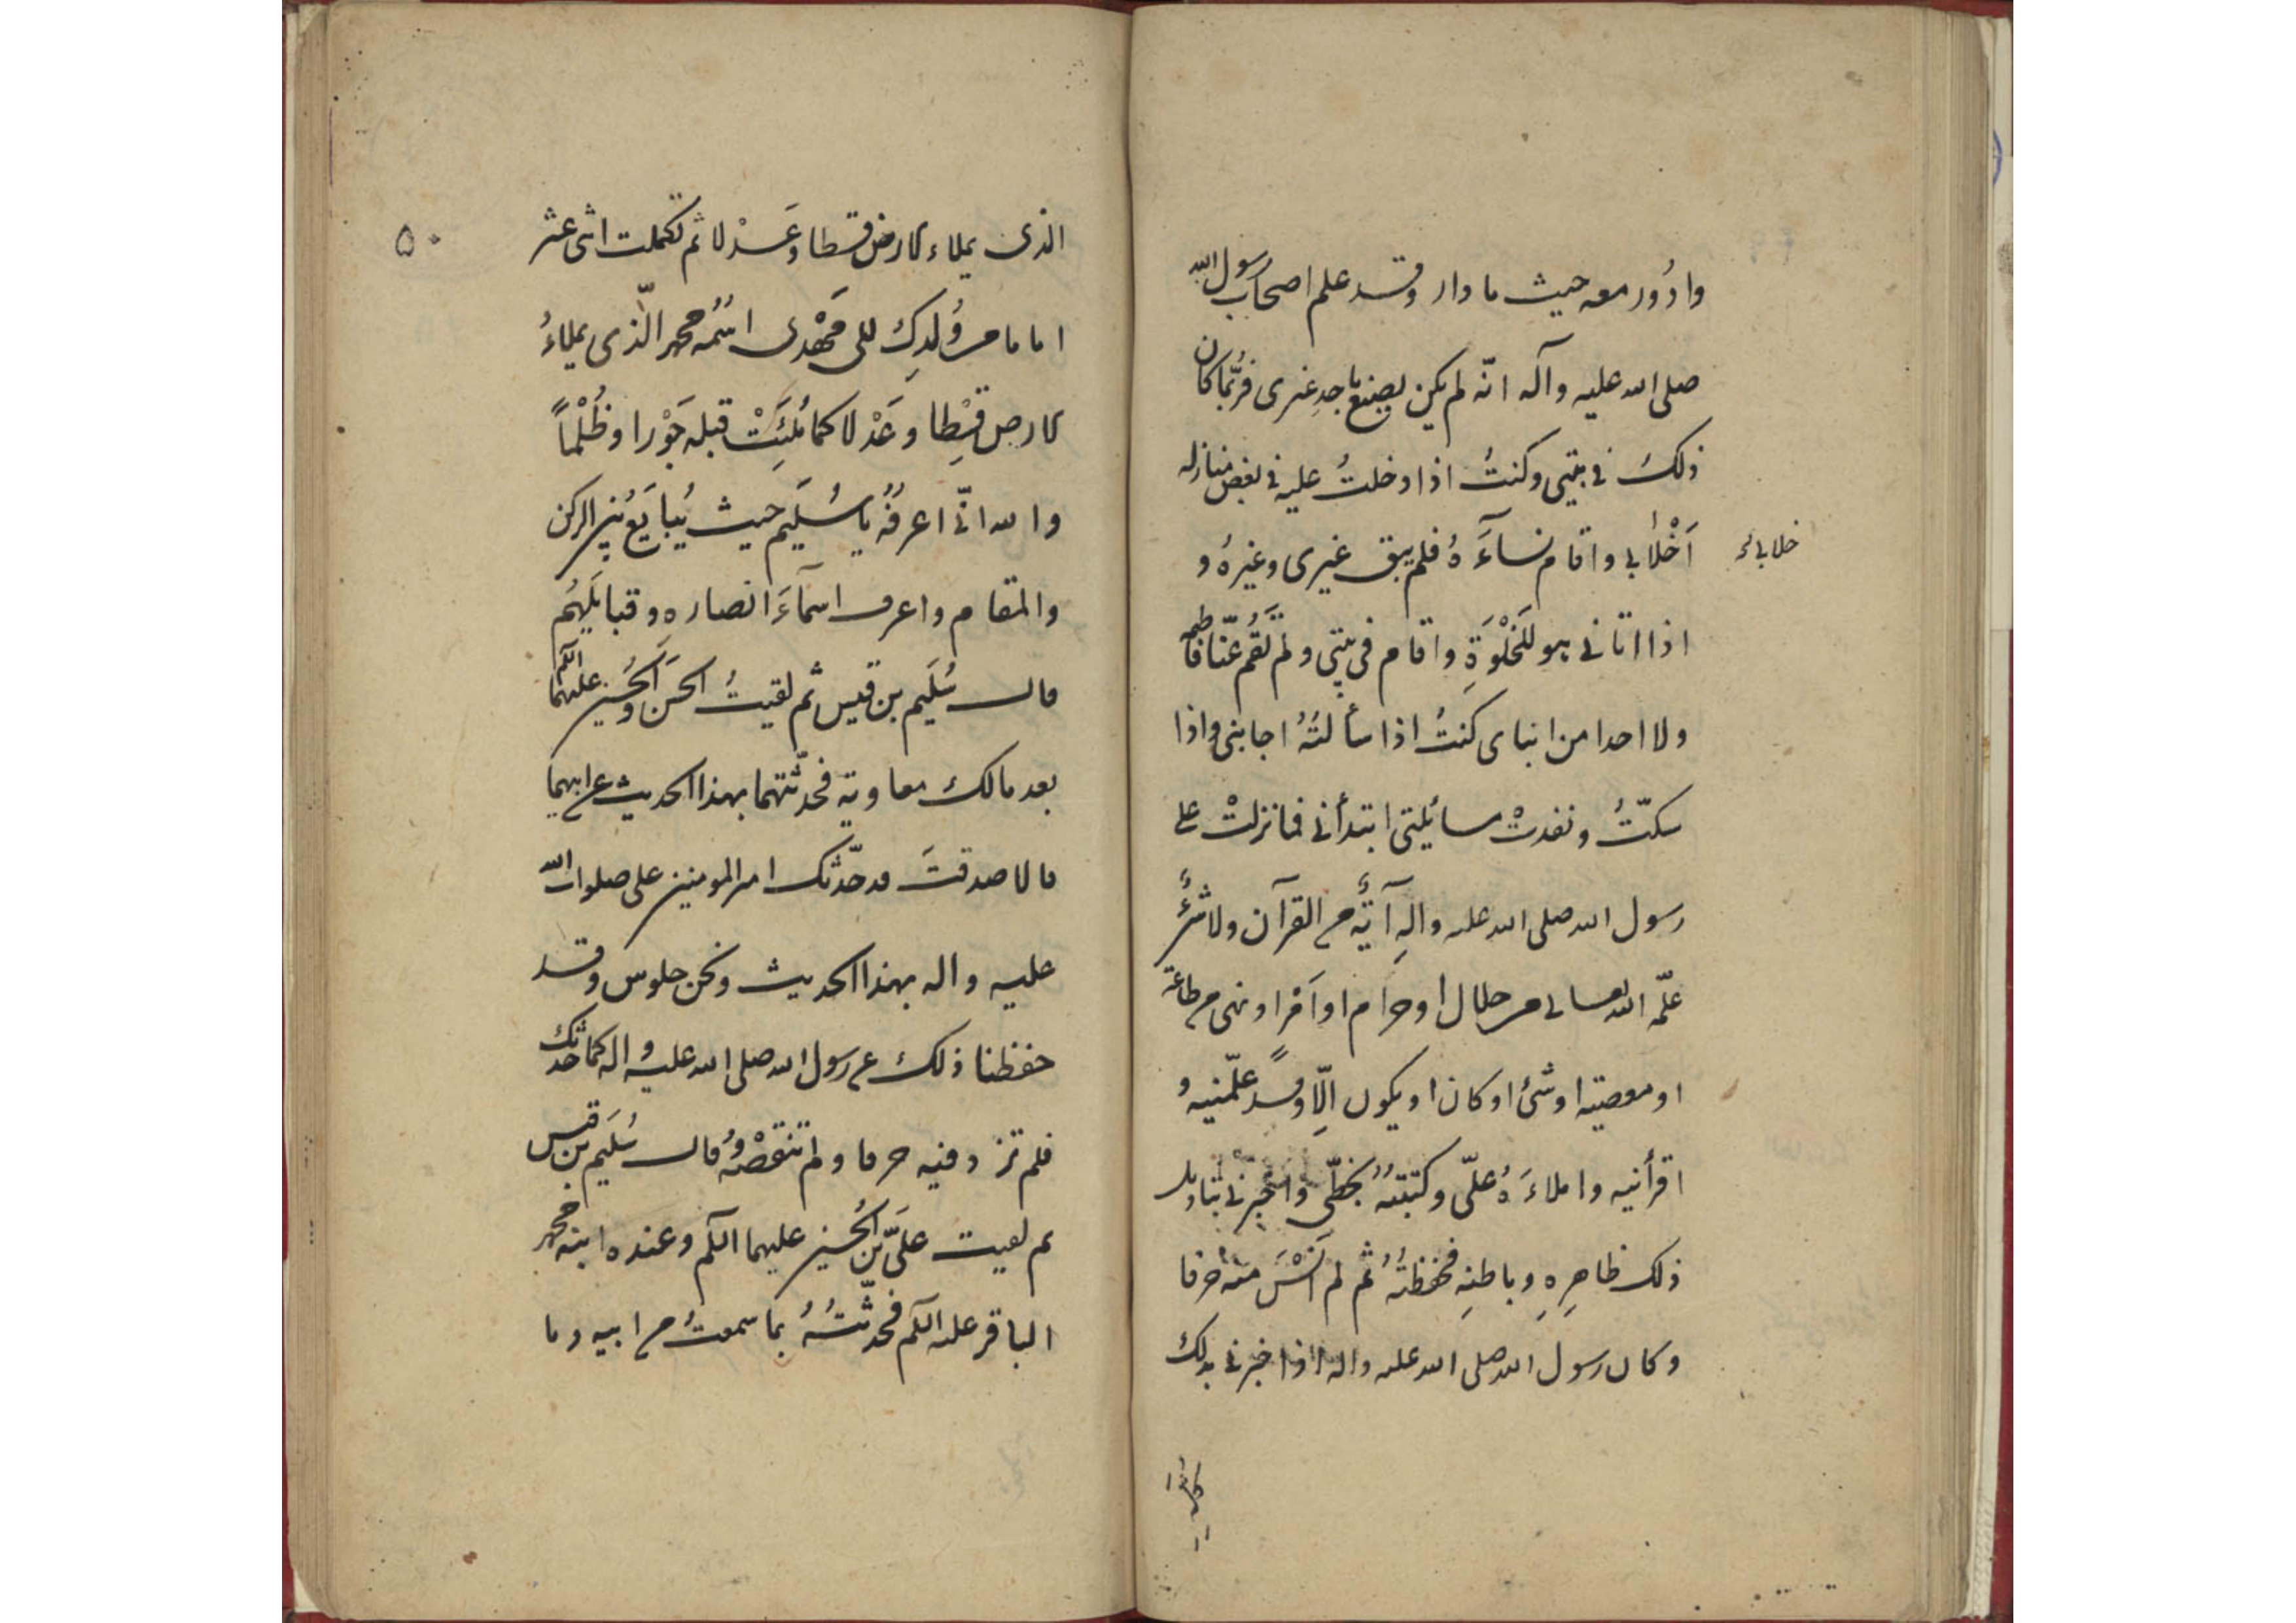 وادُور معه حيث ما دار وقد علم اصحاب رسول الله
صلى الله عليه وآله انّه لم يكن يصنع باحد غيرى فرُبّما كان
ذلك فى بيتى وكنتُ اذا دخلتُ عليه فى بعض منازله
اَخْلاٰ بى واقام نساۤءَهُ فلم يبق غيرى وغيرهُ و
خلا بى
اذا اتانى هو للخَلْوَةِ واقام فى بيتى ولم تَقُم عنّا فاطمه
ولا احدا من ابناى كنتُ اذا سألتُهُ اجابنى واذا
سكتّتُ ونفدتْ مسائلتى ابتدأنى فما نزلتْ على
رسول الله صلى الله عليه والهِ آيةٌ من القرآن ولا شئٌ
علّمه الله تعالى من حلال او حرام او اَمْرا ونهى من طاعة
او معصيته او شئ او كان او يكون اِلّا وقد علّمنيهُ و
اقرأنيه واملاءَهُ علىّ وكتبتهُ بخطّى واخبرنى بتاويل
ذلك ظاهِرِهِ وباطنهِ فحفظتُهُ ثم لم اَنْسَ منه حرفا
وكان رسول الله صلى الله عليه واله اذا اخبرنى بذلك
٥٠
الذى يملاء الارض قسطا وعَدْلا ثم تكملت اثنى عشر
اماما من وُلدِك للى مَهْدى اسْمُه محمد الّذى يملاءُ
الارض قِسْطا وعَدْلا كما مُلِئَتْ قبله جَوْرا وظُلْماً
والله انّى اعرفُهُ يا سُلَيم حيث يُبايَعُ بين الركن
والمقام واعرف اسماۤءَ انصاره وقبايَلَهُم
قال سُلَيم بن قيس ثم لقيتُ الحَسَن والحُسَين عليهما السلم
بعد ما لك معاوية فحدّثتهما بهذا الحديث عن ابيهما
قالا صدقتَ قد حدّثك امير المومنين على صلوات الله
عليه واله بهذا الحديث ونحن جلوس وقد
حفظنا ذلك عن رسول الله صلى الله عليه واله كما حدثك
فلم تزد فيه حرفا ولم تنقصْهُ قال سُلَيم بن قيس
ثم لقيت علىَّ بن الحُسين عليهما السلم وعنده ابنه محمد
الباقر عليه السلم فحدّثتُهُ بما سمعتُ من ابيه وما